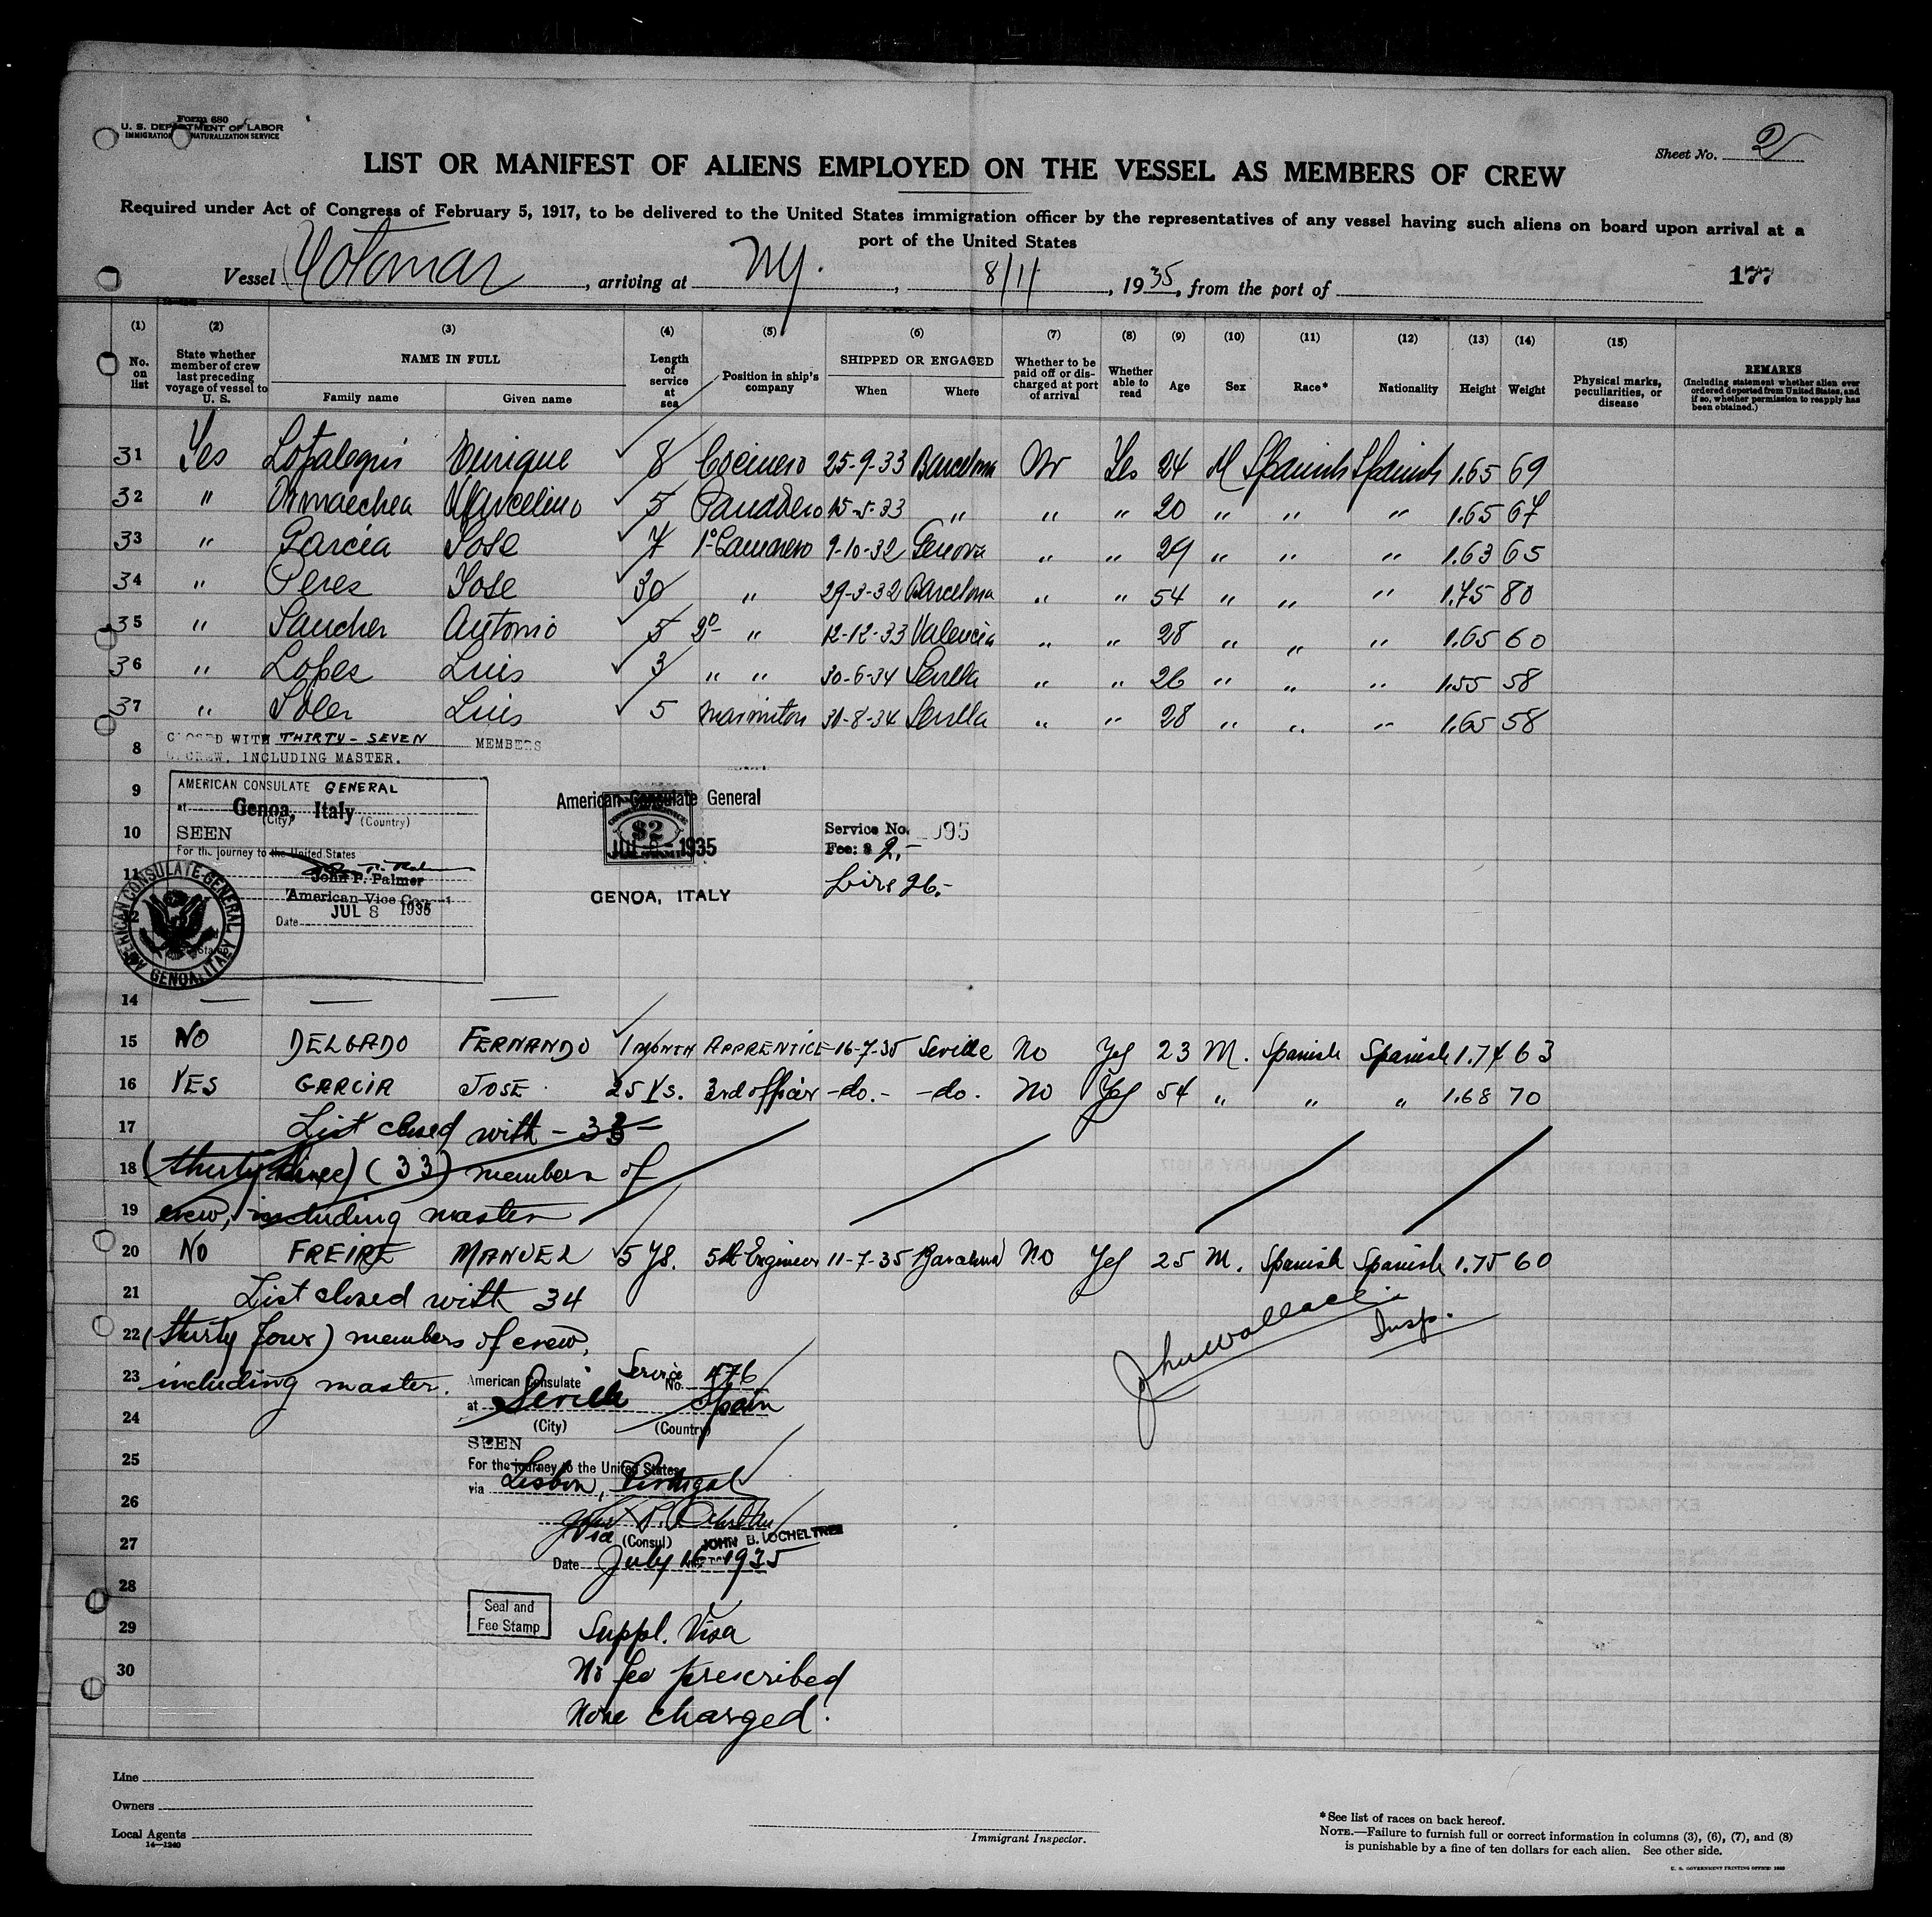 Form 680
U. S. DEPARTMENT OF LABOR
IMMIGRATION NATURALIZATION SERVICE
Sheet No. 2
LIST OR MANIFEST OF ALIENS EMPLOYED ON THE VESSEL AS MEMBERS OF CREW
Required under Act of Congress of February 5, 1917, to be delivered to the United States immigration officer by the representatives of any vessel having such aliens on board upon arrival at a
port of the United States
Vessel , arriving at NY. , 8/11 , 1935, from the port of 177
(1) (2) (3) (4) (5) (6) (7) (8) (9) (10) (11) (12) (13) (14) (15)
No. on list
State whether member of crew last preceding voyage of vessel to U. S.
NAME IN FULL
Family name Given name
Length of service at sea
Position in ship's company
SHIPPED OR ENGAGED
When Where
Whether to be paid off or discharged at port of arrival
Whether able to read
Age Sex Race* Nationality Height Weight
Physical marks, peculiarities, or disease
REMARKS
(Including statement whether alien ever ordered deported from United States, and if so, whether permission to reapply has been obtained.)
31 Yes Enrique 8 Cocinero 25-9-33 Barcelona No Yes 24 M Spanish Spanish 1.65 69
32 " Ormaechea Marcelino 5 Panadero 15-5-33 " " " 20 " " " 1.65 67
33 " Garcia Jose 7 1º Camarero 9-10-32 Genova " " 29 " " " 1.63 65
34 " Peres Jose 30 " 29-3-32 Barcelona " " 54 " " " 1.75 80
35 " Sanchez Antonio 5 2º " 12-12-33 Valencia " " 28 " " " 1.65 60
36 " Lopes Luis 3 " " 30-6-34 Sevilla " " 26 " " " 1.55 58
37 " Soler Luis 5 Marmiton 31-8-34 Sevilla " " 28 " " " 1.65 58
8 CLOSED WITH THIRTY-SEVEN MEMBERS
CREW, INCLUDING MASTER.
9 AMERICAN CONSULATE GENERAL
at Genoa, Italy
(City) (Country)
10 SEEN
For the journey to the United States
11 John P. Palmer
American Vice Con
JUL 8 1935
Date
AMERICAN CONSULATE GENERAL GENOA, ITALY
American Consulate General
$2
JUL 8 1935
GENOA, ITALY
Service No. 095
Fee: $ 2,-
Lire 26.-
14 — — —
15 NO DELGADO FERNANDO 1 MONTH APPRENTICE 16-7-35 Seville No Yes 23 M. Spanish Spanish 1.74 63
16 YES GARCIA JOSE 25 Ys. 3rd officer -do.- -do. No Yes 54 " " " 1.68 70
17 List closed with - 33 -
18 (thirty three) (33) members of
19 crew, including master
20 NO FREIRE MANUEL 5 Ys. 5th Engineer 11-7-35 Barcelona No Yes 25 M. Spanish Spanish 1.75 60
21 List closed with 34
22 (thirty four) members of crew,
23 including master.
Insp.
American Consulate Service No. 476
at Seville Spain
24 (City) (Country)
SEEN
25 For the journey to the United States
via Lisbon, Portugal
26
27 Vice (Consul) JOHN B. OCHELTREE
Date July 16 1935
28
Seal and
Fee Stamp
29 Suppl. Visa
30 No fee prescribed
None charged.
Line
Owners
Local Agents
14—1240
Immigrant Inspector.
*See list of races on back hereof.
NOTE.—Failure to furnish full or correct information in columns (3), (6), (7), and (8)
is punishable by a fine of ten dollars for each alien. See other side.
U. S. GOVERNMENT PRINTING OFFICE